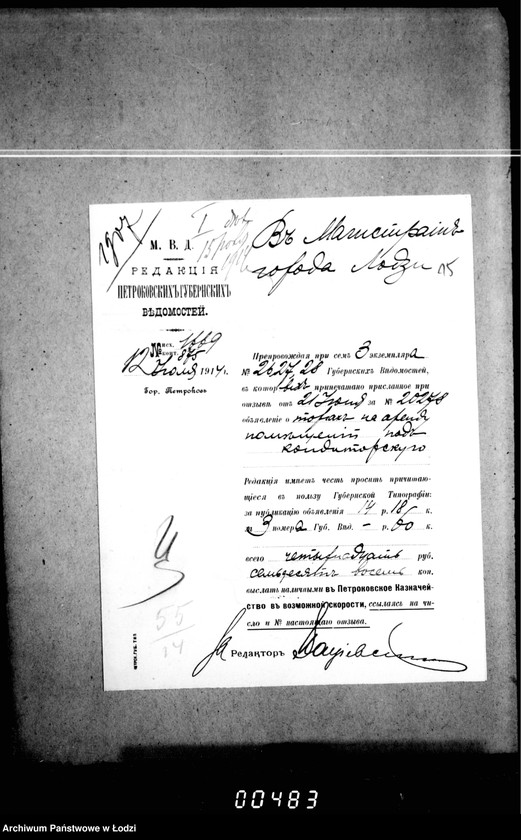 М. В. Д.
РЕДАКЦІЯ
ПЕТРОКОВСКИХЪ ГУБЕРНСКИХЪ
ВѢДОМОСТЕЙ.
№ исх. 1669
конт. 875
12 Іюля 1914 г.
Гор. Петроковъ
Въ Магистратъ
города Лодзи
Препровождая при семъ 3 экземпляра
№ 26, 27, 28 Губернскихъ Вѣдомостей,
въ которыхъ припечатано присланное при
отзывѣ отъ 21 Іюня за № 20278
объявленіе о торгахъ на аренду
помѣщеній подъ
кондиторскую
Редакція имѣетъ честь просить причитаю-
щіеся въ пользу Губернской Типографіи:
за публикацію объявленія 14 р. 18 к.
за 3 номера Губ. Вѣд. – р. 60 к.
всего четырнадцать руб.
семьдесятъ восемь коп.
выслать наличными въ Петроковское Казначей-
ство въ возможной скорости, ссылаясь на чи-
сло и № настоящаго отзыва.
За Редакторъ
55
14
00483
Archiwum Państwowe w Łodzi